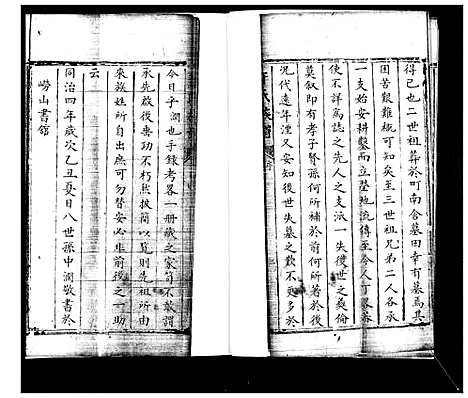 得已也二世祖葬於町南舍墓田幸有墓焉其
困苦艱難概可知矣至三世祖兄弟二人各承
一支始安耕鑿而立塋地流傳至今人丁
使不詳爲誌之先人之支派一失後世之彝倫
莫叙即有孝子賢孫何所補於前何所著於後
況代遠年湮又安知後世失墓之歎不更多於
今日乎潤也手錄考畧一册藏之家笥不敢謂
承先啟後專功不朽然披簡以覽則先祖所由
來族姓所自出庶可勿替安必非前後之一助
云
同治四年歲次乙丑夏日八世孫中潤敬書於
嶗山書館